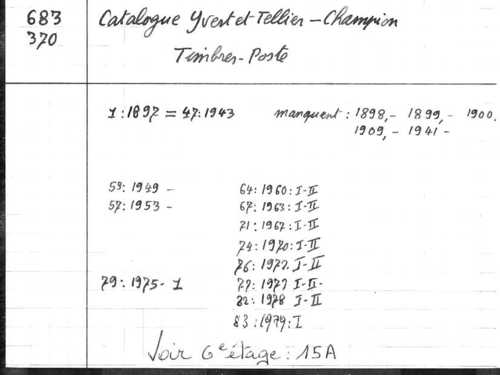 683 Catalogue Yvert et Tellier - Champion
370 Timbres-Poste
1:1897 = 47:1943 manquent: 1898,- 1899,- 1900,
1909,- 1941 -
59: 1949 - 64: 1960: I-II
57: 1953 - 67: 1963: I-II
71: 1967: I-II
74: 1970: I-II
76: 1972. I-II
79: 1975- 1 77: 1977 I-II-
82: 1978 I-II
83: 1979: I
Voir 6e étage: 15A